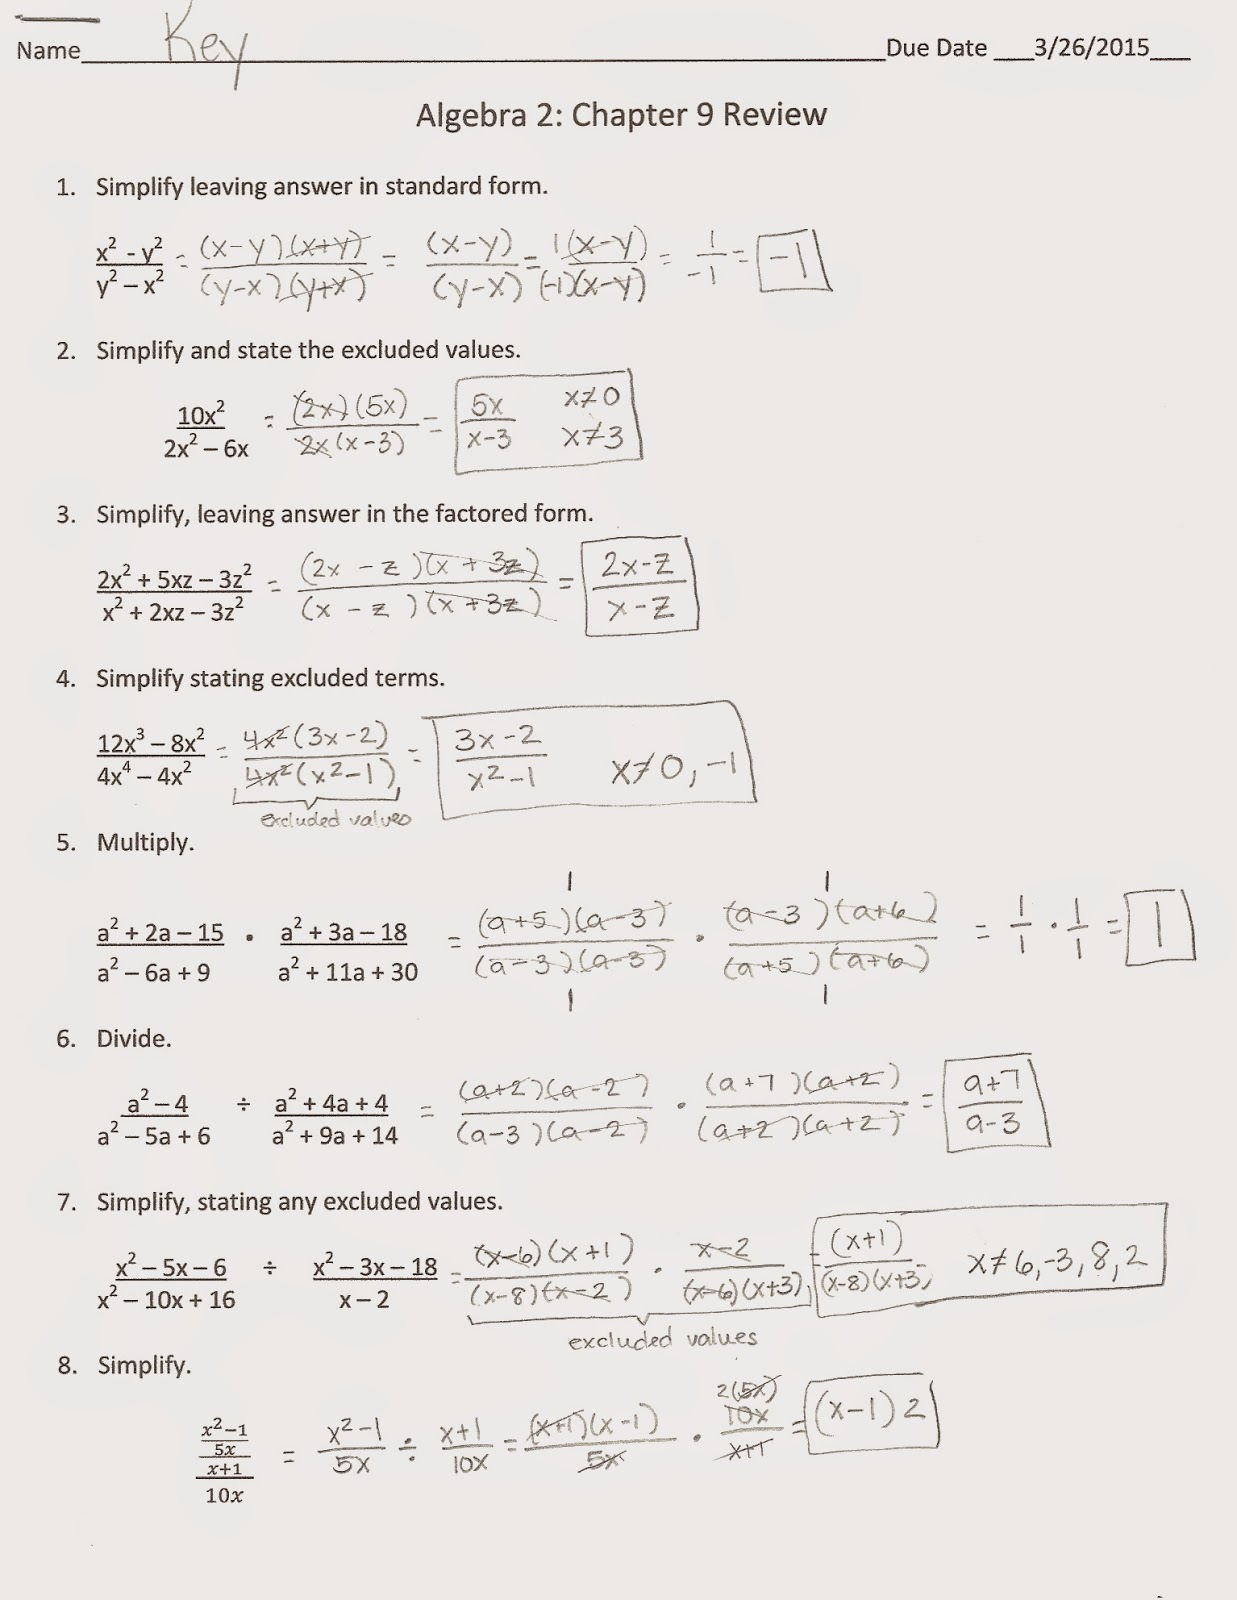 Name Key Due Date ___3/26/2015___
Algebra 2: Chapter 9 Review
1. Simplify leaving answer in standard form.
(x² - y²)/(y² – x²) = (x-y)(x+y)/(y-x)(y+x) = (x-y)/(y-x) = 1(x-y)/(-1)(x-y) = 1/-1 = -1
2. Simplify and state the excluded values.
10x²/(2x² – 6x) = (2x)(5x)/2x(x-3) = 5x/(x-3) x≠0 x≠3
3. Simplify, leaving answer in the factored form.
(2x² + 5xz – 3z²)/(x² + 2xz – 3z²) = (2x - z)(x + 3z)/(x - z)(x + 3z) = (2x-z)/(x-z)
4. Simplify stating excluded terms.
(12x³ – 8x²)/(4x⁴ – 4x²) = 4x²(3x-2)/4x²(x²-1) = (3x-2)/(x²-1) x≠0,-1
excluded values
5. Multiply.
(a² + 2a – 15)/(a² – 6a + 9) • (a² + 3a – 18)/(a² + 11a + 30) = 1 (a+5)(a-3)/(a-3)(a-3) 1 • 1 (a-3)(a+6)/(a+5)(a+6) 1 = 1/1 • 1/1 = 1
6. Divide.
(a² – 4)/(a² – 5a + 6) ÷ (a² + 4a + 4)/(a² + 9a + 14) = (a+2)(a-2)/(a-3)(a-2) • (a+7)(a+2)/(a+2)(a+2) = (a+7)/(a-3)
7. Simplify, stating any excluded values.
(x² – 5x – 6)/(x² – 10x + 16) ÷ (x² – 3x – 18)/(x – 2) = (x-6)(x+1)/(x-8)(x-2) • (x-2)/(x-6)(x+3) = (x+1)/(x-8)(x+3) x≠6,-3,8,2
excluded values
8. Simplify.
((x²−1)/5x)/((x+1)/10x) = (x²-1)/5x ÷ (x+1)/10x = (x+1)(x-1)/5x • 2(5x) 10x/(x+1) = (x-1)2